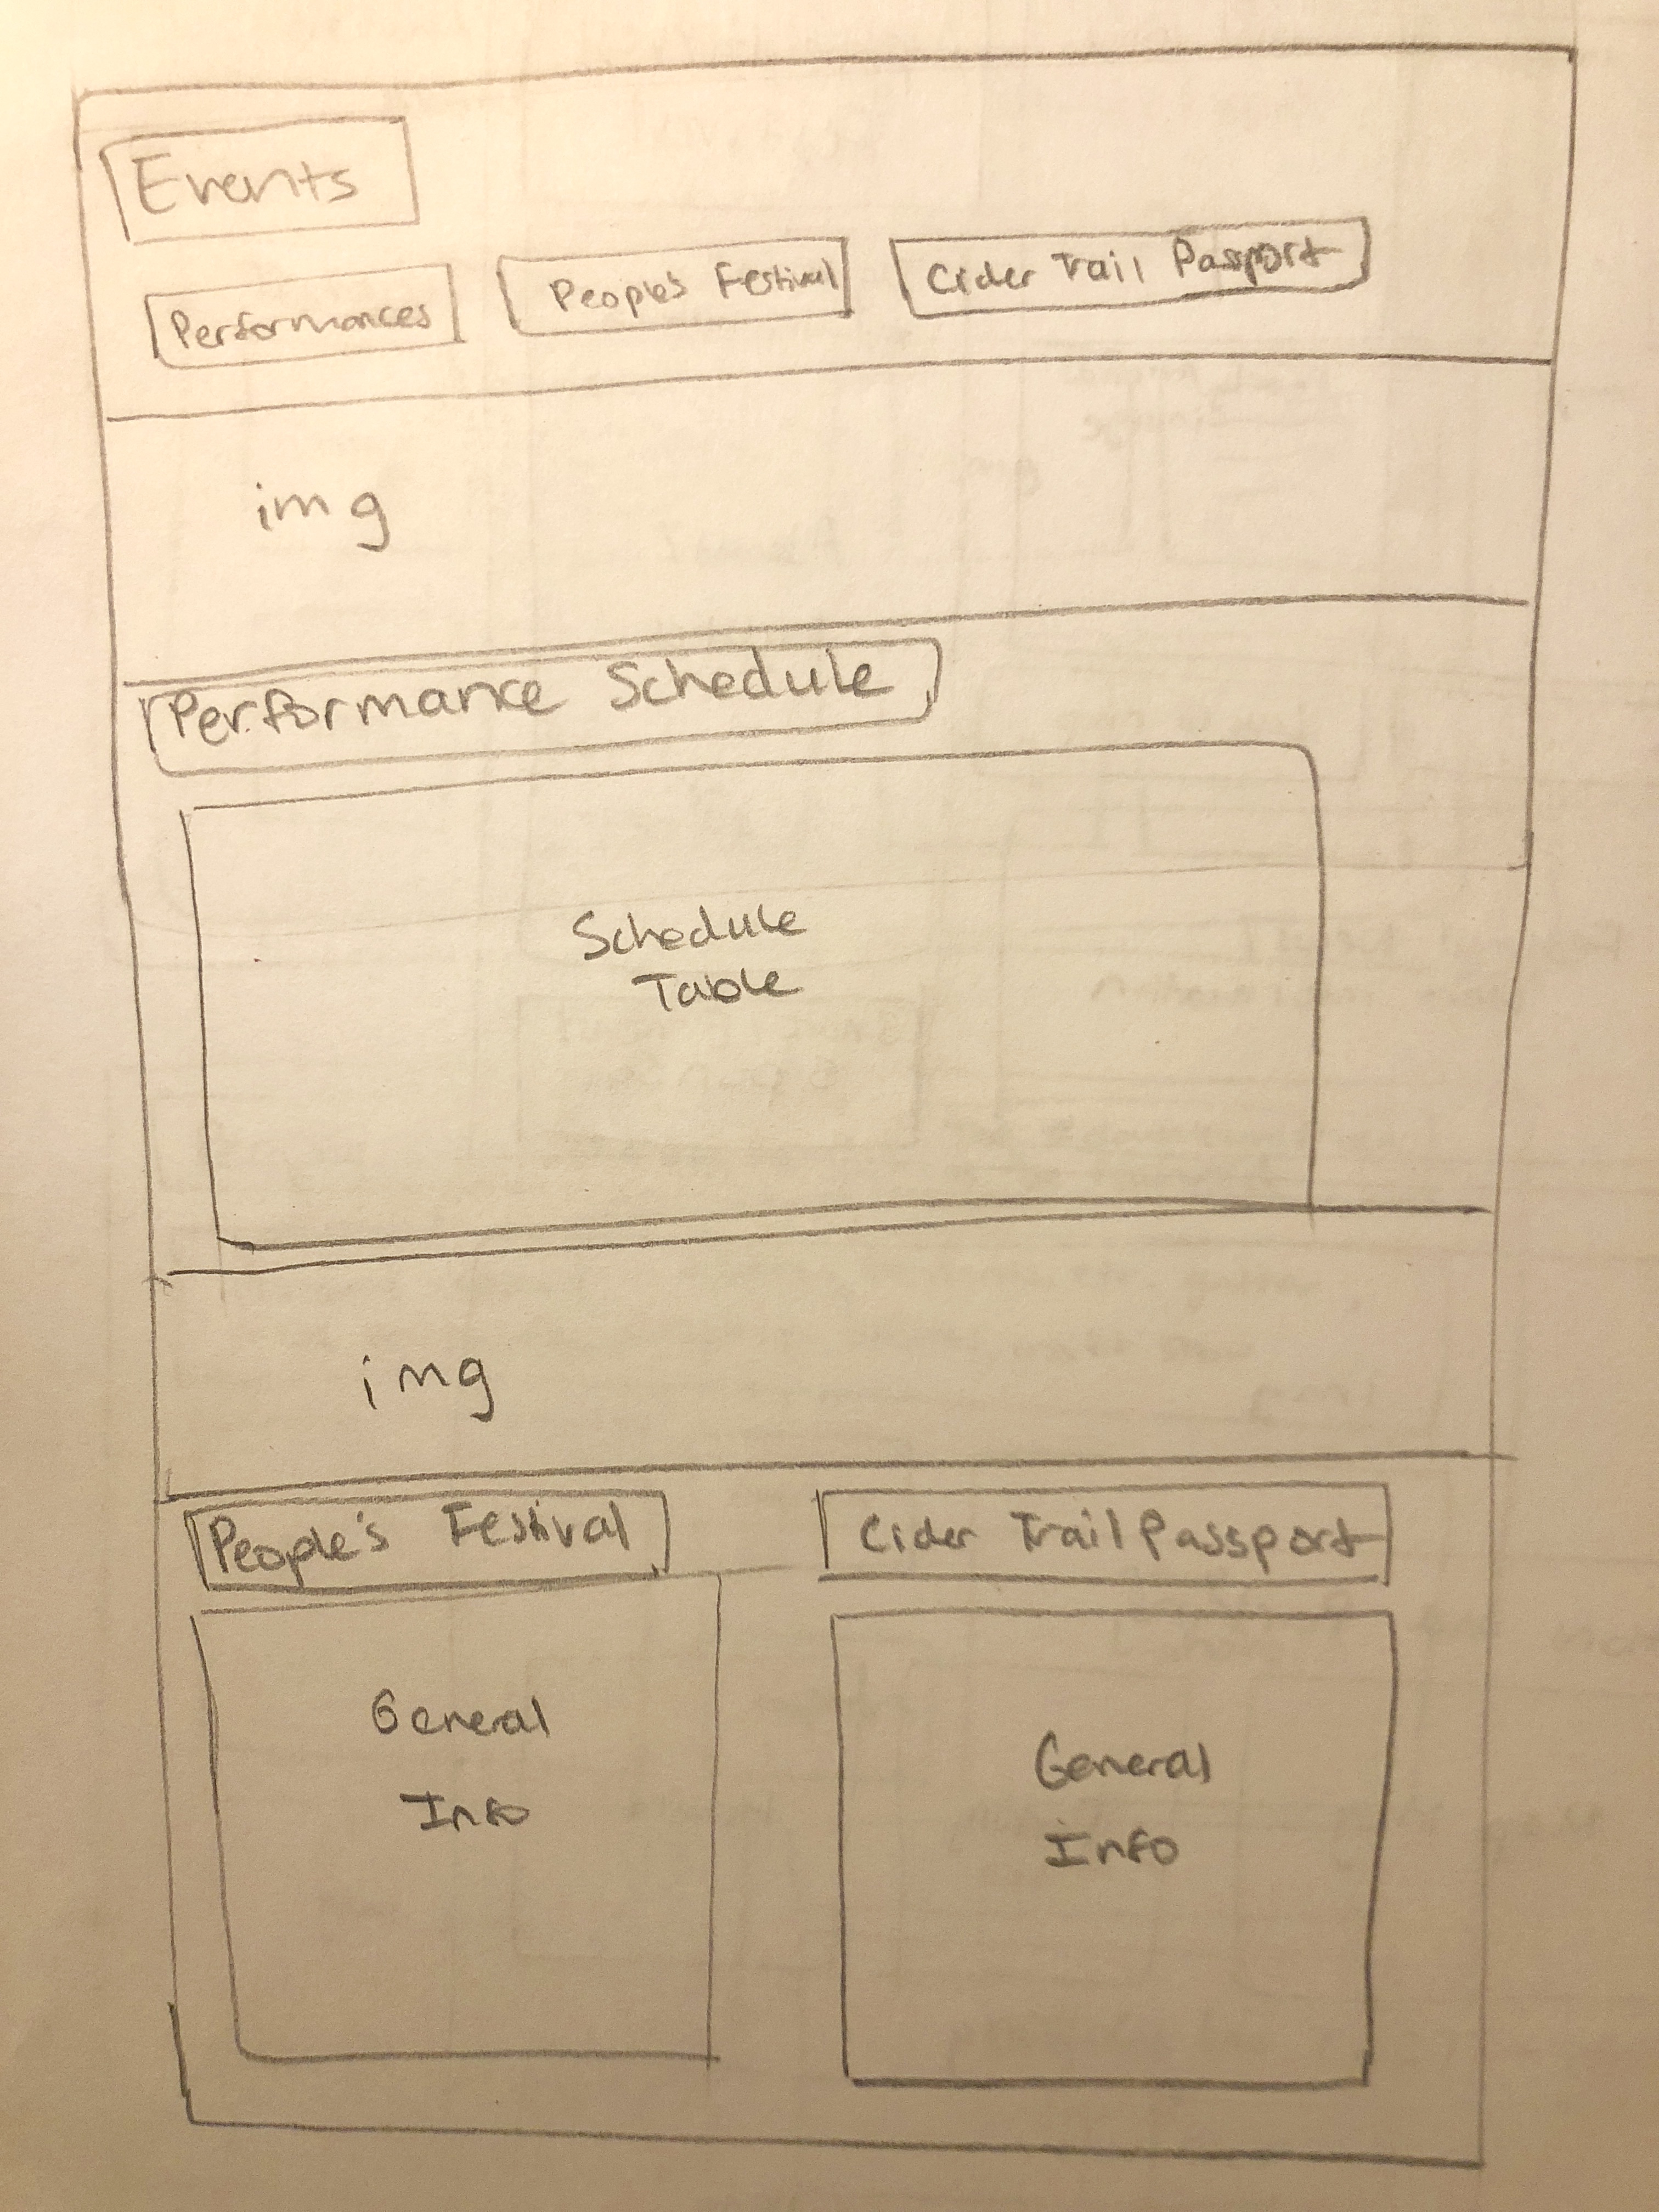 Events
Performances
People's Festival
Cider Trail Passport
img
Performance Schedule
Schedule
Table
img
People's Festival
Cider Trail Passport
General
Info
General
Info